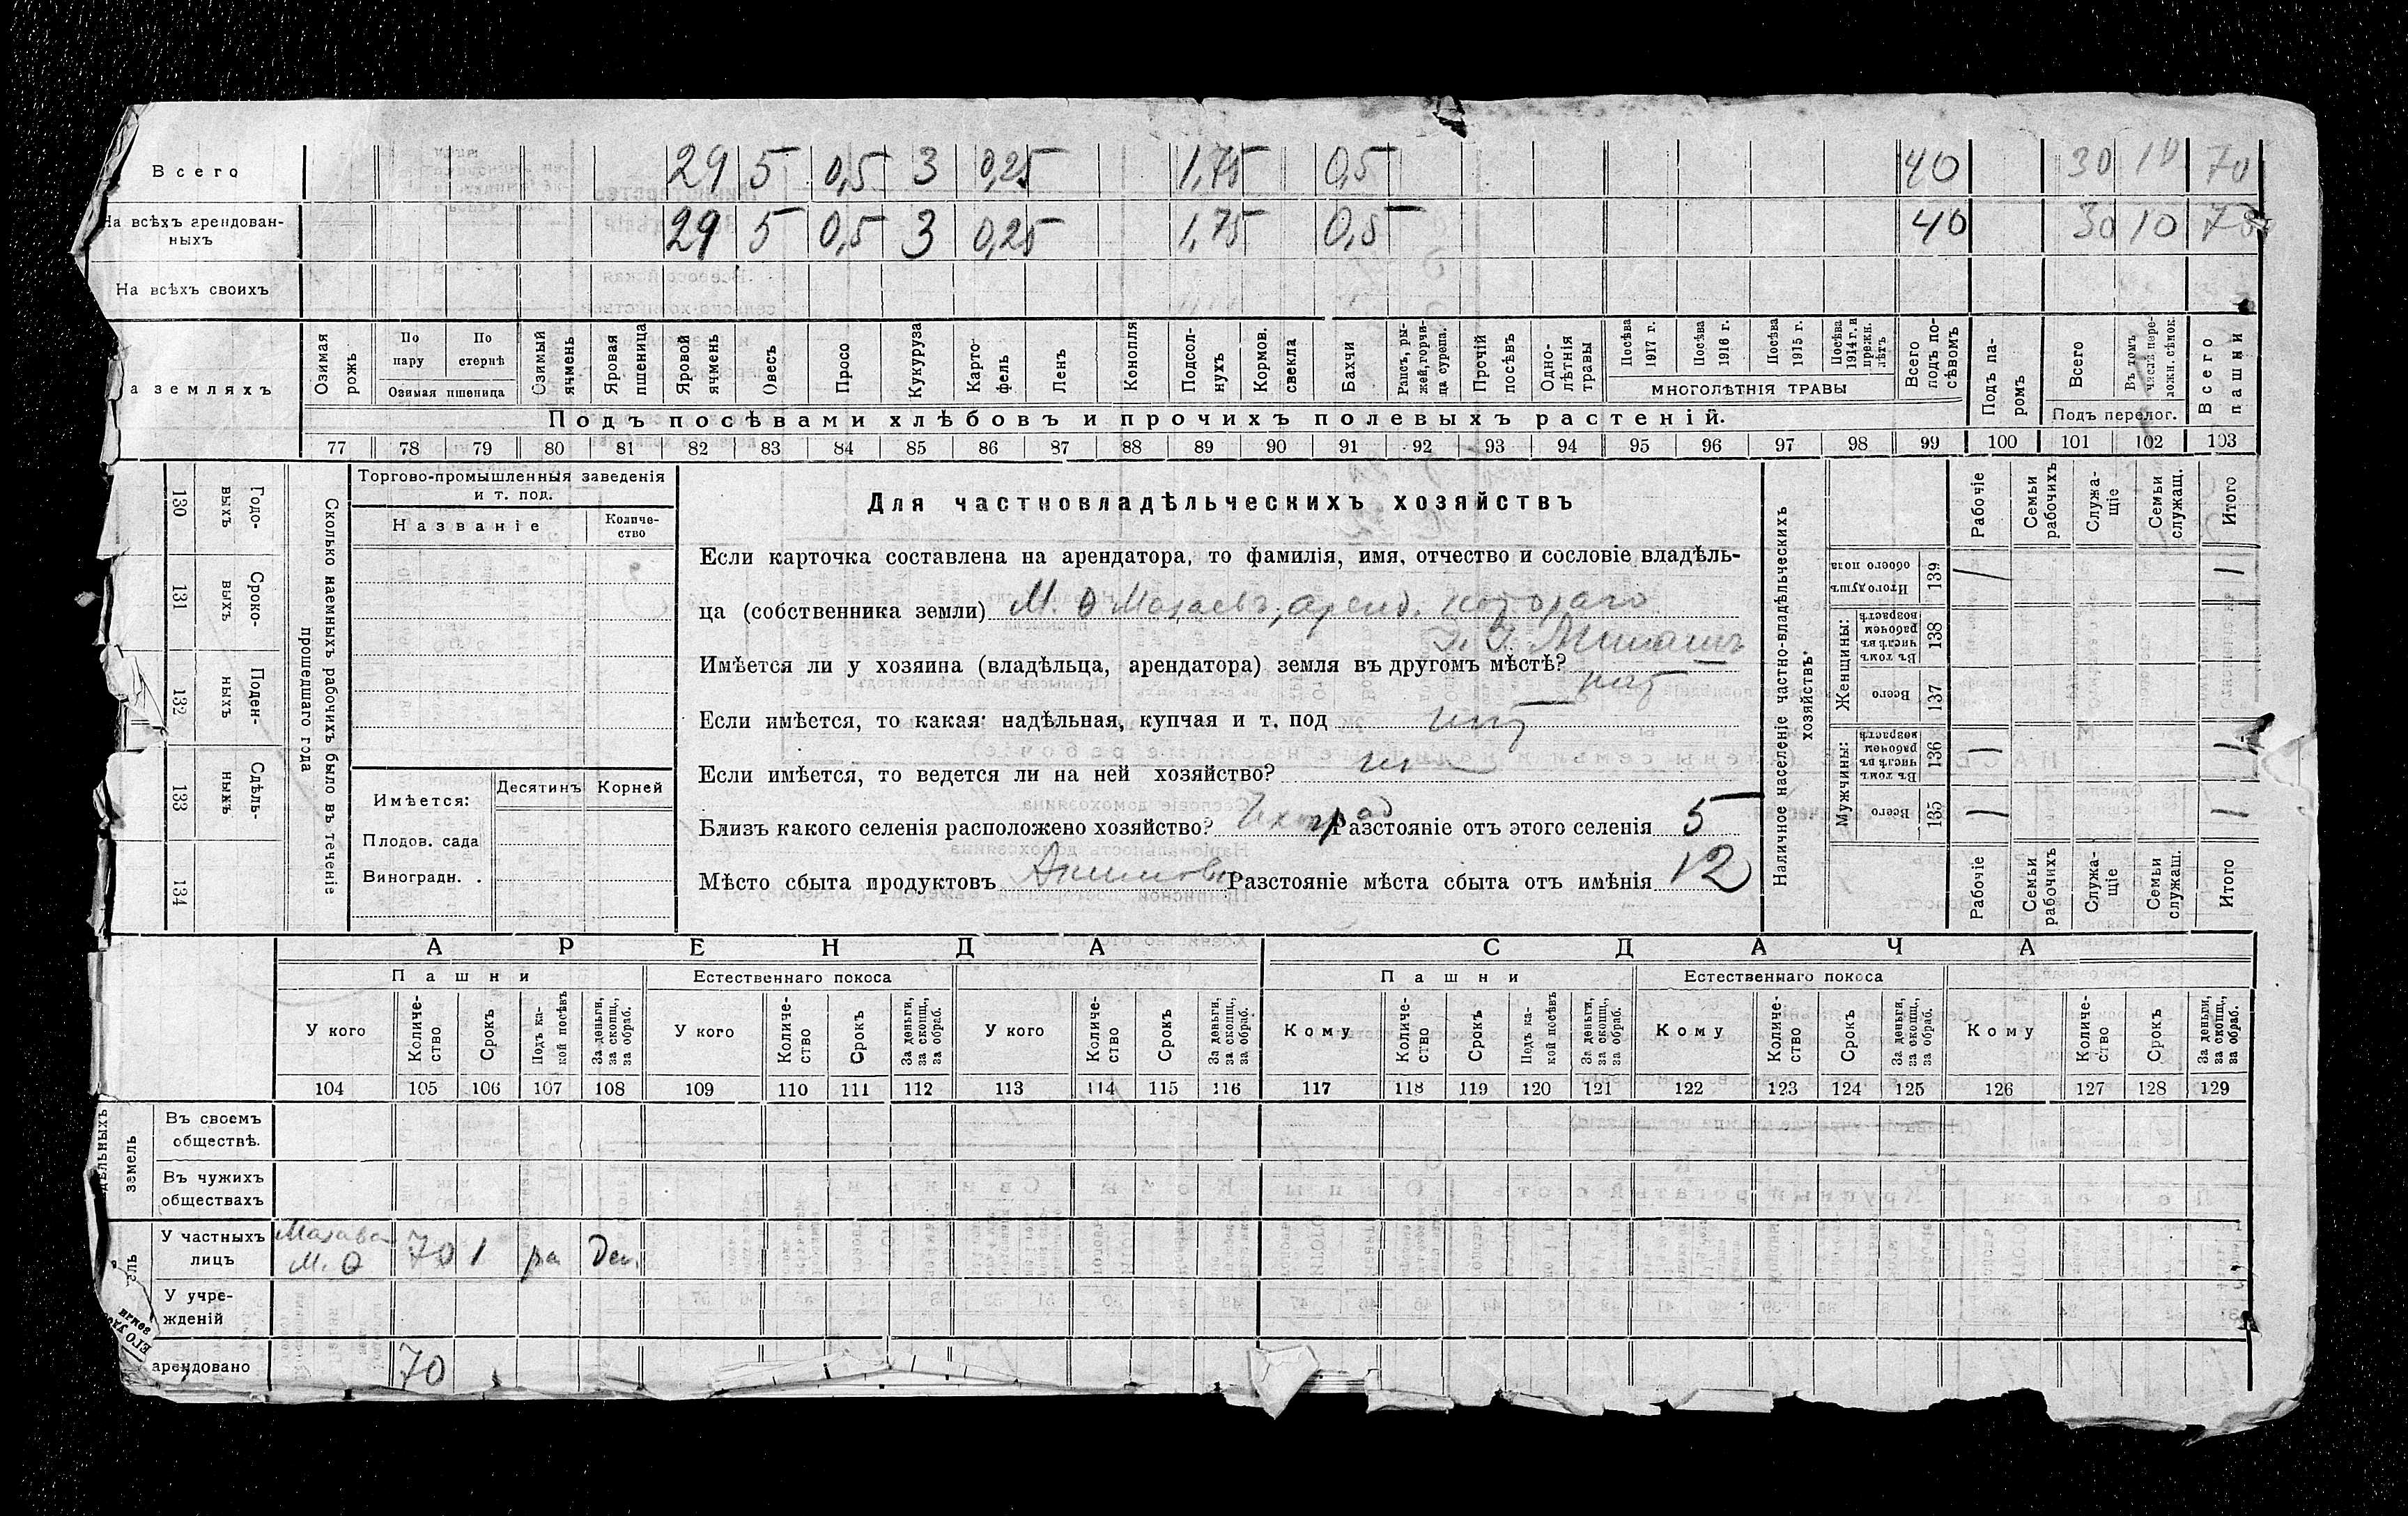 Всего 29 5 0,5 3 0,25 1,75 0,5 40 30 10 70
На всѣхъ арендован-
ныхъ 29 5 0,5 3 0,25 1,75 0,5 40 30 10 70
На всѣхъ своихъ
а земляхъ
Озимая рожь
По пару
По стернѣ
Озимая пшеница
Озимый ячмень
Яровая пшеница
Яровой ячмень
Овесъ
Просо
Кукуруза
Карто-
фель
Ленъ
Конопля
Подсол-
нухъ
Кормов. свекла
Бахчи
Рапсъ, ры-
жей, горчи-
ца сурепа.
Прочій посѣвъ
Одно-
лѣтнія травы
Посѣва 1917 г.
Посѣва 1916 г.
Посѣва 1915 г.
Посѣва 1914 г. и прежн. лѣтъ
МНОГОЛѢТНІЯ ТРАВЫ
Всего подъ по-
сѣвомъ
Подъ па-
ромъ
Всего
Въ томъ числѣ пере-
ложн. сѣнок.
Подъ перелог.
Всего пашни
Подъ посѣвами хлѣбовъ и прочихъ полевыхъ растеній.
77 78 79 80 81 82 83 84 85 86 87 88 89 90 91 92 93 94 95 96 97 98 99 100 101 102 103
130 Годо-
выхъ
131 Сроко-
выхъ
132 Поден-
ныхъ
133 Сдѣль-
ныхъ
134
Сколько наемныхъ рабочихъ было въ теченіе
прошедшаго года
Торгово-промышленныя заведенія
и т. под.
Названіе
Количе-
ство
Имѣется:
Десятинъ
Корней
Плодов. сада
Виноградн.
Для частновладѣльческихъ хозяйствъ
Если карточка составлена на арендатора, то фамилія, имя, отчество и сословіе владѣль-
ца (собственника земли) М. Ѳ Мазаевъ, аренд. котораго
Имѣется ли у хозяина (владѣльца, арендатора) земля въ другомъ мѣстѣ?
нѣт
Если имѣется, то какая: надѣльная, купчая и т. под нѣт
Если имѣется, то ведется ли на ней хозяйство?
Близъ какого селенія расположено хозяйство? Разстояніе отъ этого селенія 5
Мѣсто сбыта продуктовъ Разстояніе мѣста сбыта отъ имѣнія 12
Наличное населеніе частно-владѣльческихъ
хозяйствъ.
Рабочіе
Семьи рабочихъ
Служа-
щіе
Семьи служащ.
Итого
Итого душъ обоего пола 139 1 1
Женщины:
Въ томъ числѣ въ рабочем возрастѣ 138
Всего 137
Мужчины:
Въ томъ числѣ въ рабочем возрастѣ 136 1 1
Всего 135 1 1
Рабочіе
Семьи рабочихъ
Служа-
щіе
Семьи служащ.
Итого
АРЕНДА СДАЧА
Пашни Естественнаго покоса Пашни Естественнаго покоса
У кого
Количе-
ство
Срокъ
Подъ ка-
кой посѣвъ
За деньги, за скопщ., за обраб.
У кого
Количе-
ство
Срокъ
За деньги, за скопщ., за обраб.
У кого
Количе-
ство
Срокъ
За деньги, за скопщ., за обраб.
Кому
Количе-
ство
Срокъ
Подъ ка-
кой посѣвъ
За деньги, за скопщ., за обраб.
Кому
Количе-
ство
Срокъ
За деньги, за скопщ., за обраб.
Кому
Количе-
ство
Срокъ
За деньги, за скопщ., за обраб.
104 105 106 107 108 109 110 111 112 113 114 115 116 117 118 119 120 121 122 123 124 125 126 127 128 129
дѣльныхъ
земель
Въ своемъ
обществѣ.
Въ чужихъ
обществахъ
У частныхъ
лицъ
М. Ѳ 70 1 Ден.
У учре-
жденій
арендовано 70